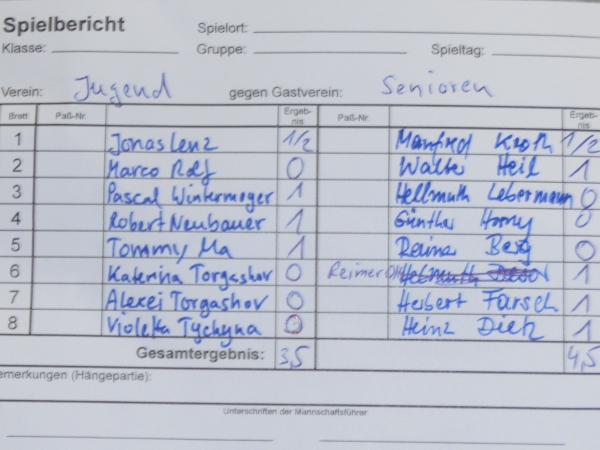 Spielbericht Spielort:
Klasse: Gruppe: Spieltag:
Verein: Jugend gegen Gastverein: Senioren
Brett Paß-Nr. Ergeb-nis Paß-Nr. Ergeb-nis
1 Jonas Lenz 1/2 Manfred Kroth 1/2
2 Marco Rolf 0 Walter Heil 1
3 Pascal Wintermeyer 1 Hellmuth Lebermann 0
4 Robert Neubauer 1 Günther Horny 0
5 Tommy Ma 1 Reiner Berg 0
6 Katerina Torgashov 0 Reimer 1
7 Alexei Torgashov 0 Herbert Farsch 1
8 Violetta Tychyna 0 Heinz Dietz 1
Gesamtergebnis: 3,5 4,5
emerkungen (Hängepartie):
Unterschriften der Mannschaftsführer